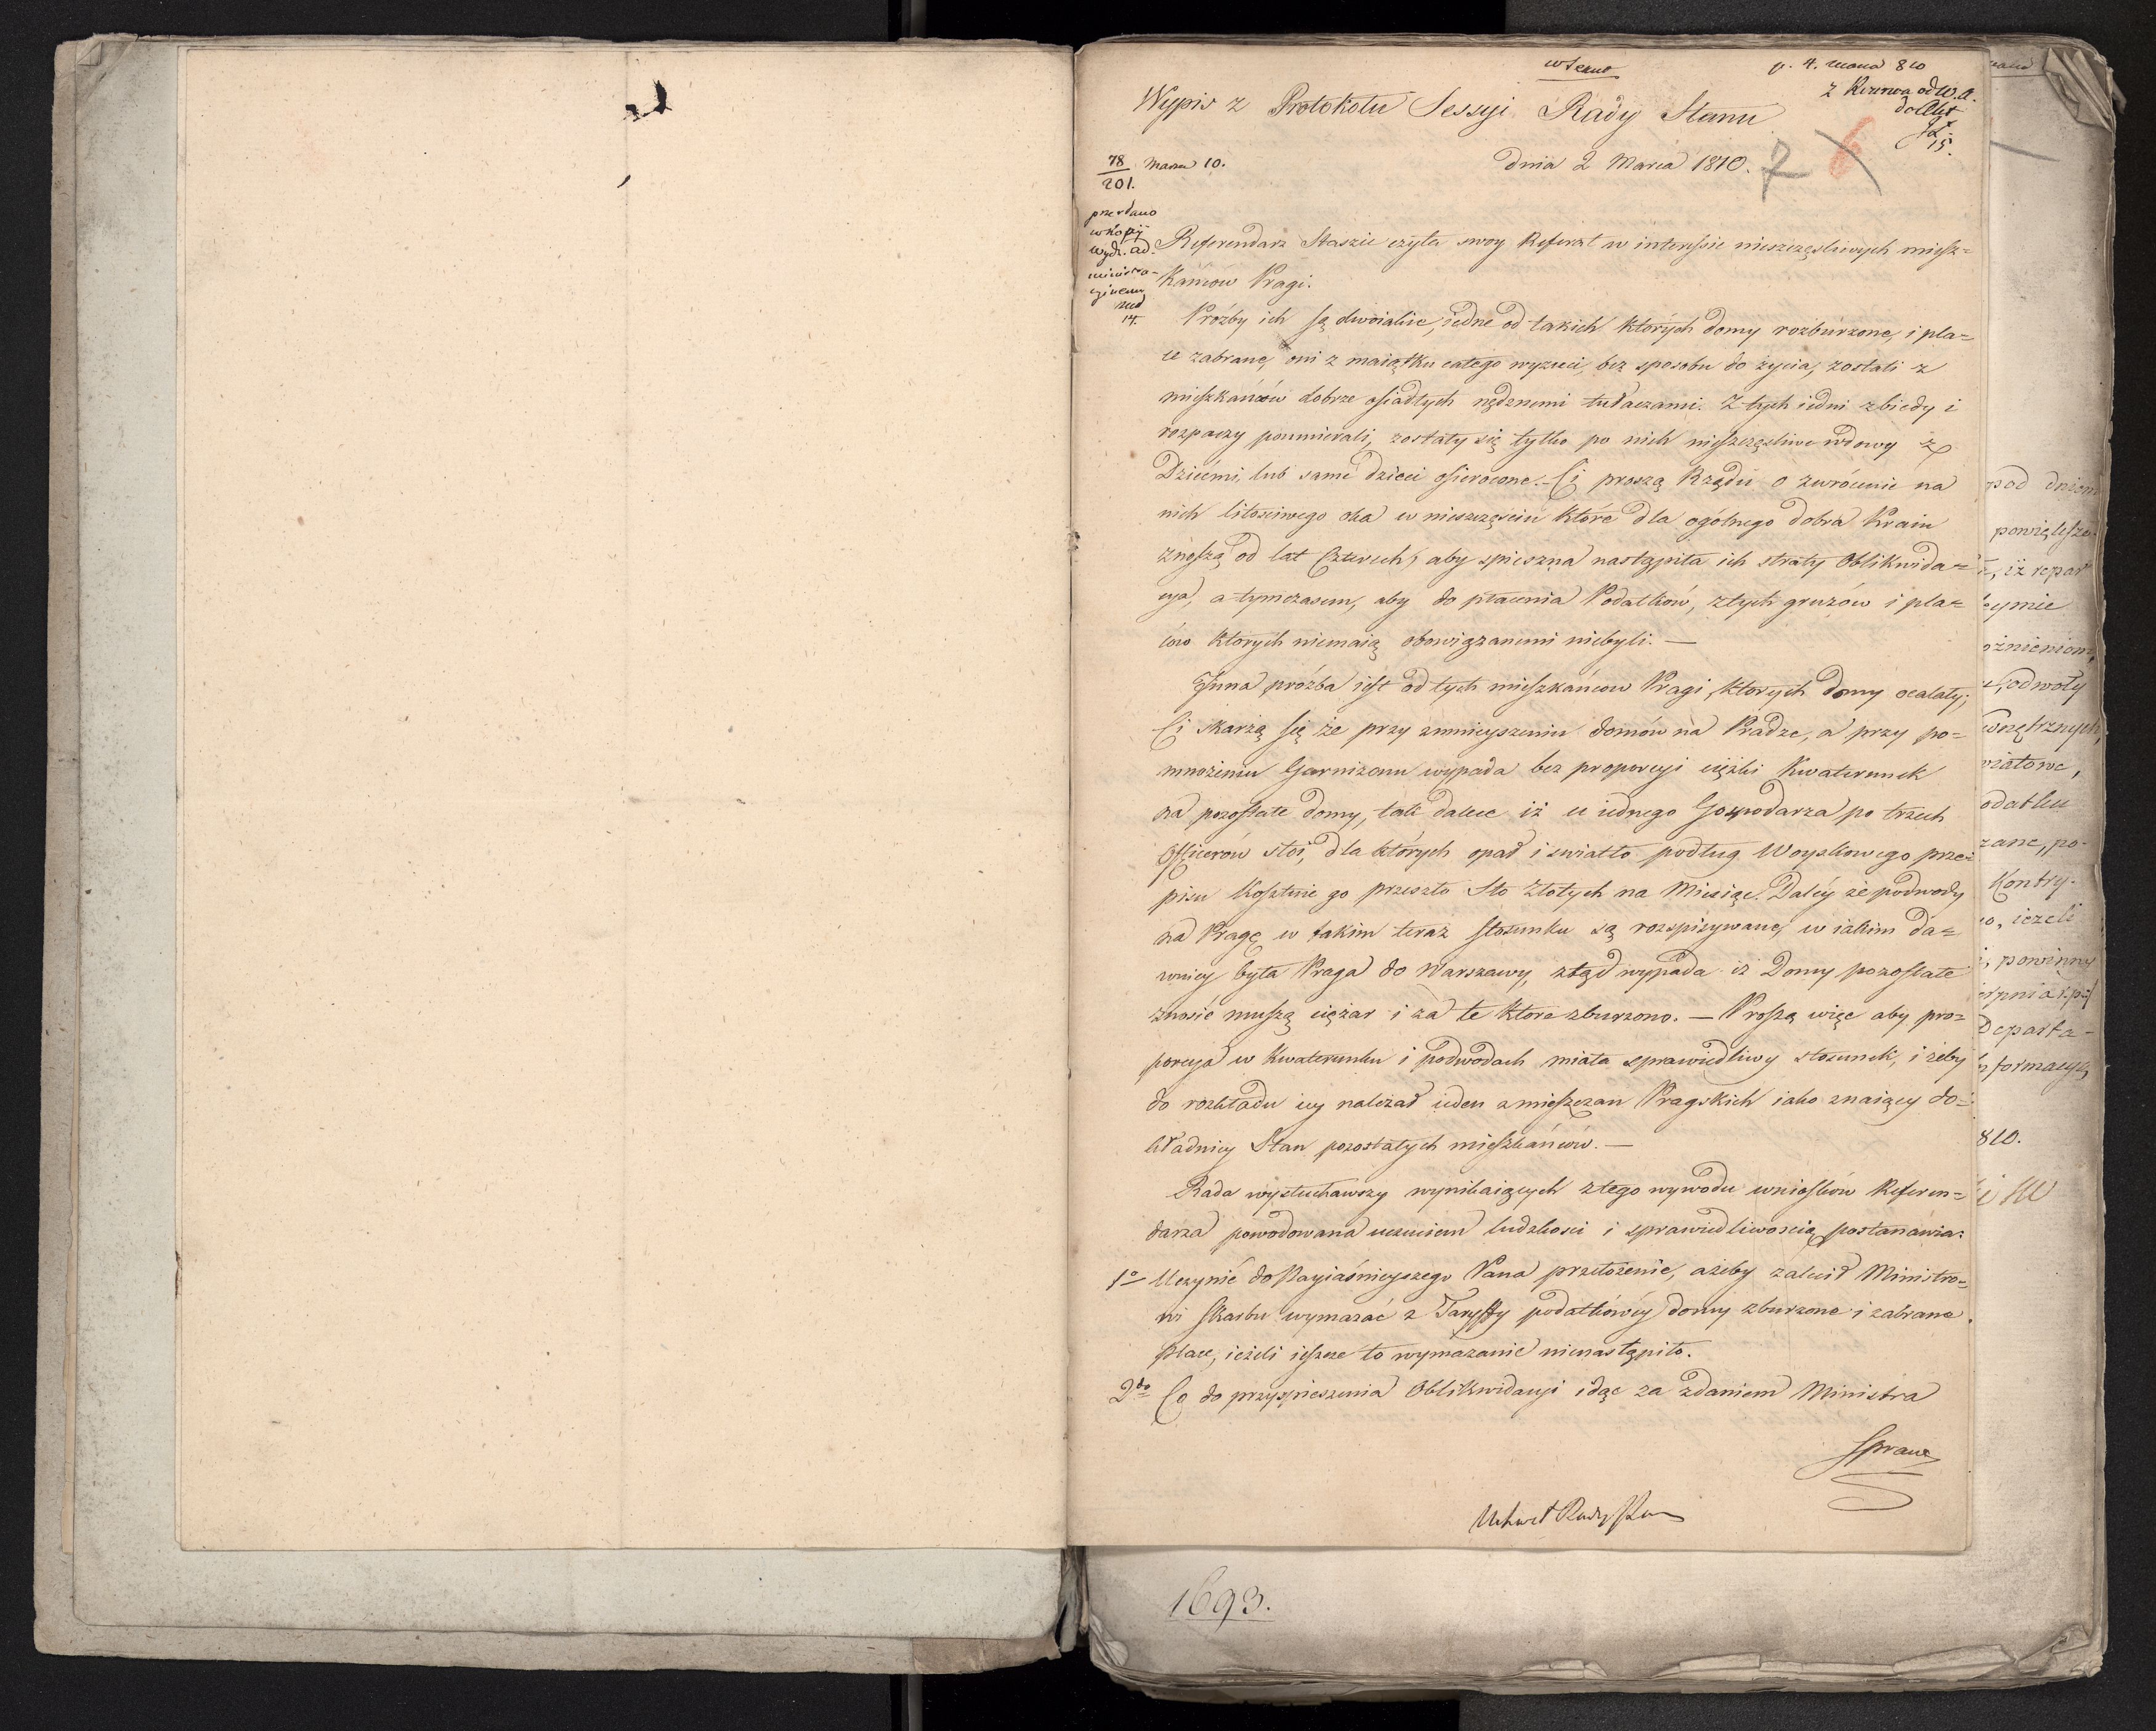 p. 4. marca 810
Wypis z Protokołu Sessyi Rady Stanu
z Rzerwa od W. A.
do Akt
15.
dnia 2 Marca 1810.
7 6
78 Marca 10.
201.
przesłano
w kopij
wydz. ad-
ministra-
cyinemu
14.
Referendarz Staszic czyta swoy Referat w interessie nieszczęśliwych miesz=
kańcow Pragi.
Prozby ich są dwoiakie, iedne od takich których domy rozburzone, i pla=
ce zabrane, oni z maiątku całego wyzuci, bez sposobu do życia, zostali z
mieszkańców dobrze osiadłych nędznemi tułaczami. Z tych iedni z biedy i
rozpaczy poumierali, zostały się tylko po nich nieszczęśliwe wdowy z
Dziećmi, lub same dzieci osierocone. Ci proszą Rządu o zwrócenie na
nich litościwego oka w nieszczęściu które dla ogólnego dobra Kraiu
znoszą od lat Czterech, aby spieszna nastąpiła ich straty Oblikwida=
cya, a tymczasem, aby do płacenia Podatków, z tych gruzów i pla=
ców ktorych niemaią obowiązanemi niebyli. —
Inna prózba iest od tych mieszkańcow Pragi, ktorych domy ocalały;
Ci skarzą się że przy zmnieyszeniu domów na Pradze, a przy po=
mnożeniu Garnizonu wypada bez proporcyi cięzki Kwaterunek
na pozostałe domy, tak dalece iż u iednego Gospodarza po trzech
Officerów stoi, dla których opał i swiatło podług Woyskowego prze=
pisu kosztuie go przeszło Sto Złotych na Miesiąc. Daléy że podwody
na Pragę w takim teraz stosunku są rozspisywane, w iakim da=
wniey była Praga do Warszawy, ztąd wypada iż Domy pozostałe
znosić muszą ciężar i za te które zburzono. — Proszą więc aby pro=
porcya w Kwaterunku i podwodach miała sprawiedliwy stosunek, i żeby
do rozkładu iey należał ieden z mieszczan Pragskich iako znaiący do=
kładniey Stan pozostałych mieszkańców. —
Rada wysłuchawszy wynikaiących z tego wywodu wniosków Referen=
darza powodowana uczuciem ludzkosci i sprawiedliwoscią postanawia:
1o Uczynić do Nayiaśnieyszego Pana przełożenie, ażeby zalecił Ministro=
wi Skarbu wymazać z Taryffy podatkowéy domy zburzone i zabrane
place, ieżeli ieszcze to wymazanie nienastąpiło.
2do Co do przyspieszenia Oblikwidacyi idąc za zdaniem Ministra
Spraw
1693.
pod dniem
powiększe-
iż repar
ożnieniom,
odwoły
wnętrznych,
wiatowe,
odatku
zane, po-
Kontry-
o, iezeli
powinny
Departa-
formacyą
810.